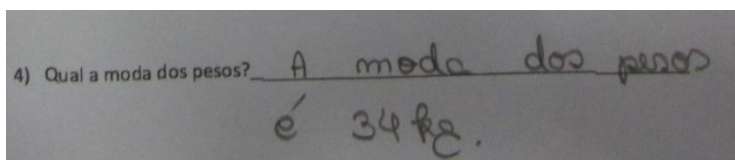 4) Qual a moda dos pesos? A moda dos pesos
é 34 kg.